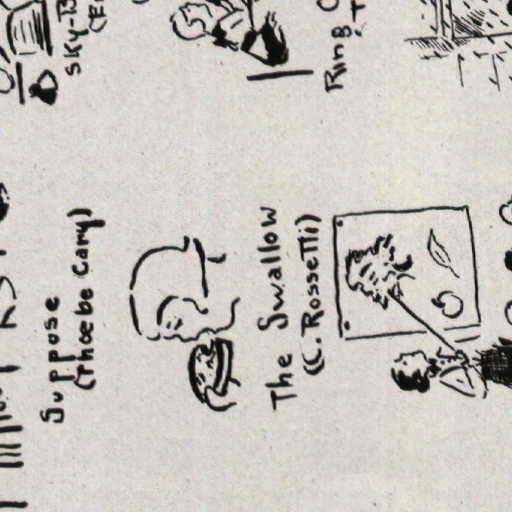 Suppose
(Phoebe Cary)
The Swallow
(C. Rossetti)
Ring